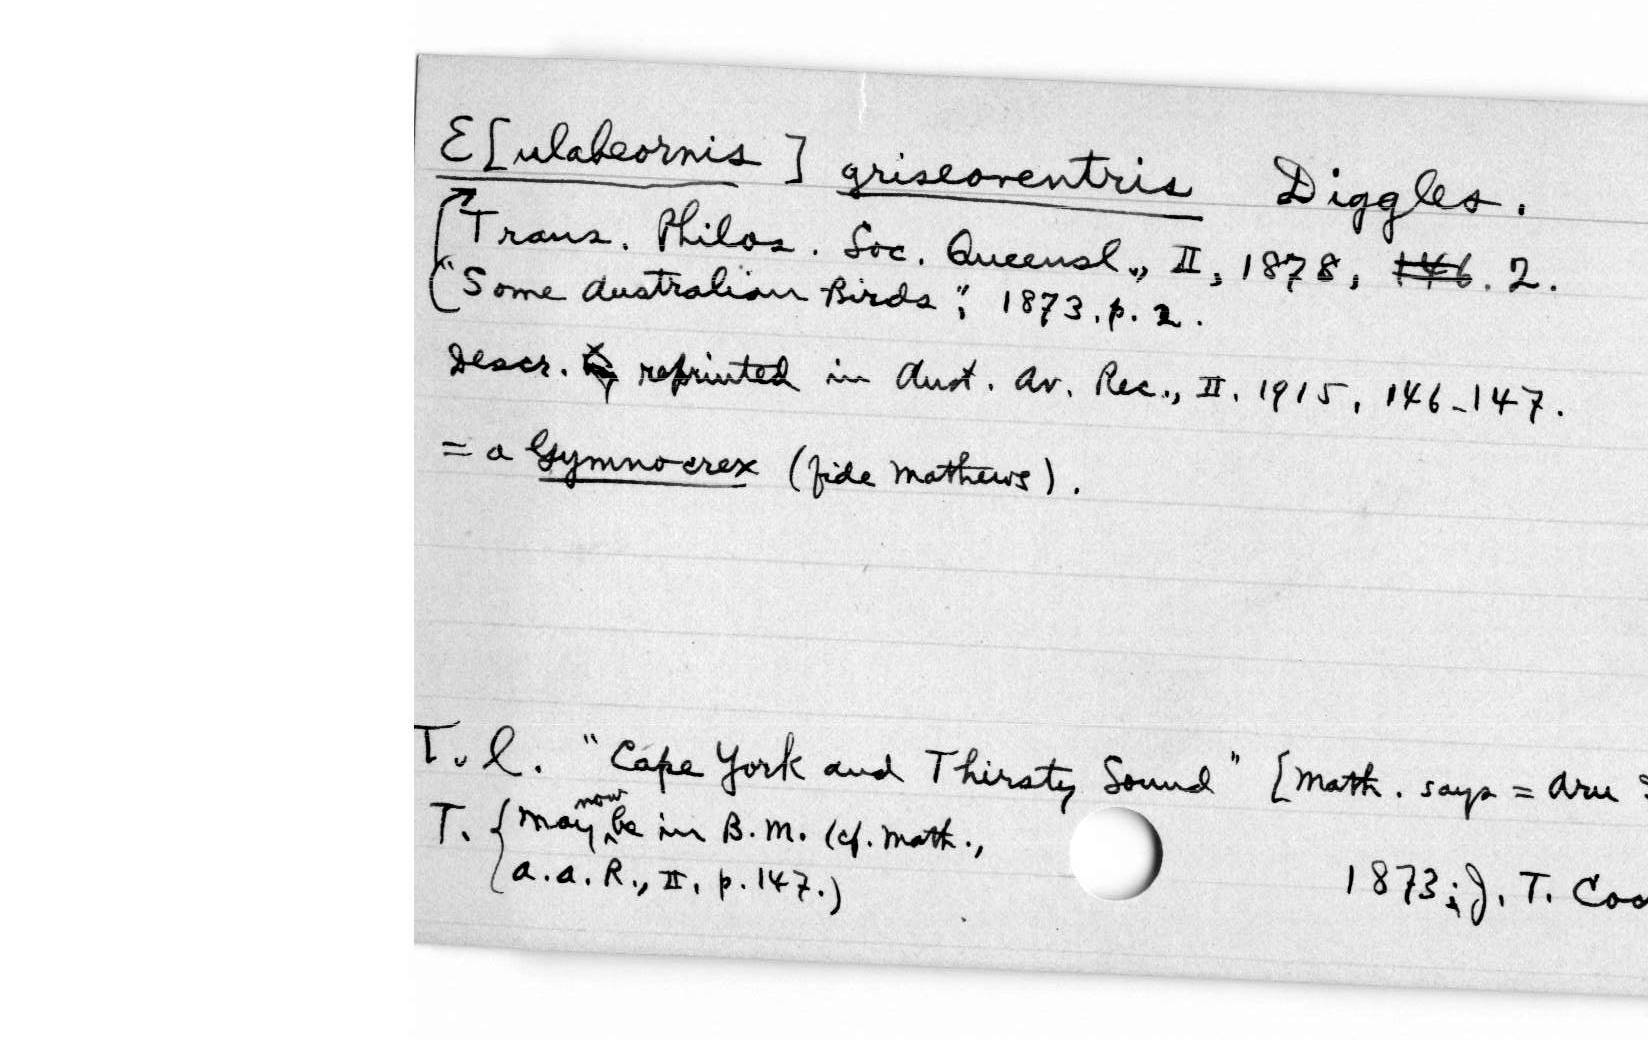 E[ulabeornis] griseoventris Diggles.
Trans. Philos. Soc. Queensl., II, 1878, 146. 2.
("Some Australian Birds", 1873. p. 2.
Descr. reprinted in Aust. Av. Rec., II. 1915, 146-147.
= a Gymnocrex (fide Mathews).
T. l. "Cape York and Thirsty Sound" [Math. says = Aru
T. { may now be in B.M. (cf. Math.,
A.A.R., II, p. 147.)
1873; J. T. Coc